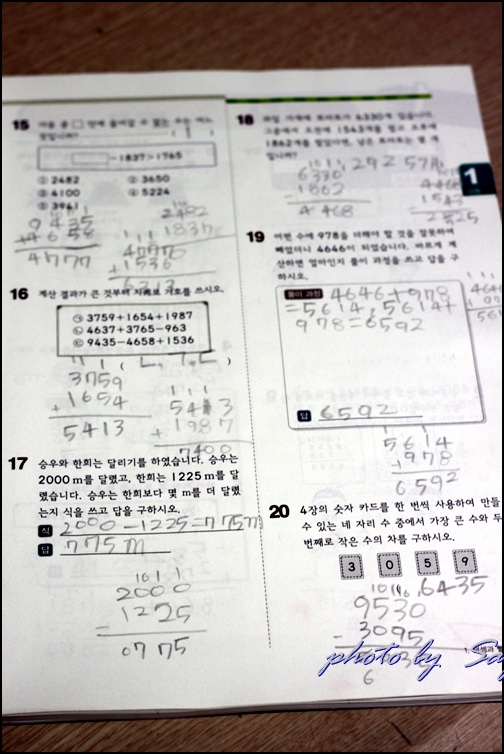 15 다음 중 □ 안에 들어갈 수 없는 수는 어느
것입니까?
-1837>1765
① 2482 ② 3650
③ 4100 ④ 5224
⑤ 3961
16 계산 결과가 큰 것부터 차례로 기호를 쓰시오.
㉠ 3759+1654+1987
㉡ 4637+3765-963
㉢ 9435-4658+1536
3759
+ 1654
5413
5413
+ 1987
7400
17 승우와 한희는 달리기를 하였습니다. 승우는
2000 m를 달렸고, 한희는 1225 m를 달
렸습니다. 승우는 한희보다 몇 m를 더 달렸
는지 식을 쓰고 답을 구하시오.
식 2000-1225=775m
답 775m
2000
1225
0775
18
1862개를 팔았다면, 남은 토마토는 몇 개
입니까?
6330
1862
4468
19 어떤 수에 978을 더해야 할 것을 잘못하여
빼었더니 4646이 되었습니다. 바르게 계
산하면 얼마인지 풀이 과정을 쓰고 답을 구
하시오.
풀이 과정 4646+978
=5614, 5614+
978=6592
답 6592
5614
+ 978
6592
20 4장의 숫자 카드를 한 번씩 사용하여 만들
수 있는 네 자리 수 중에서 가장 큰 수와 두
번째로 작은 수의 차를 구하시오.
3 0 5 9
6435
9530
- 3095
1
photo by